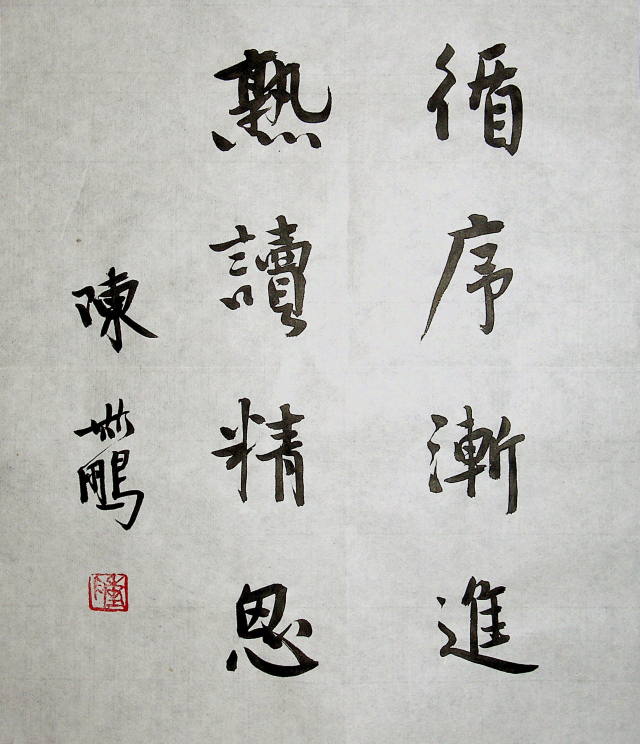 循序漸進
熟讀精思
陳